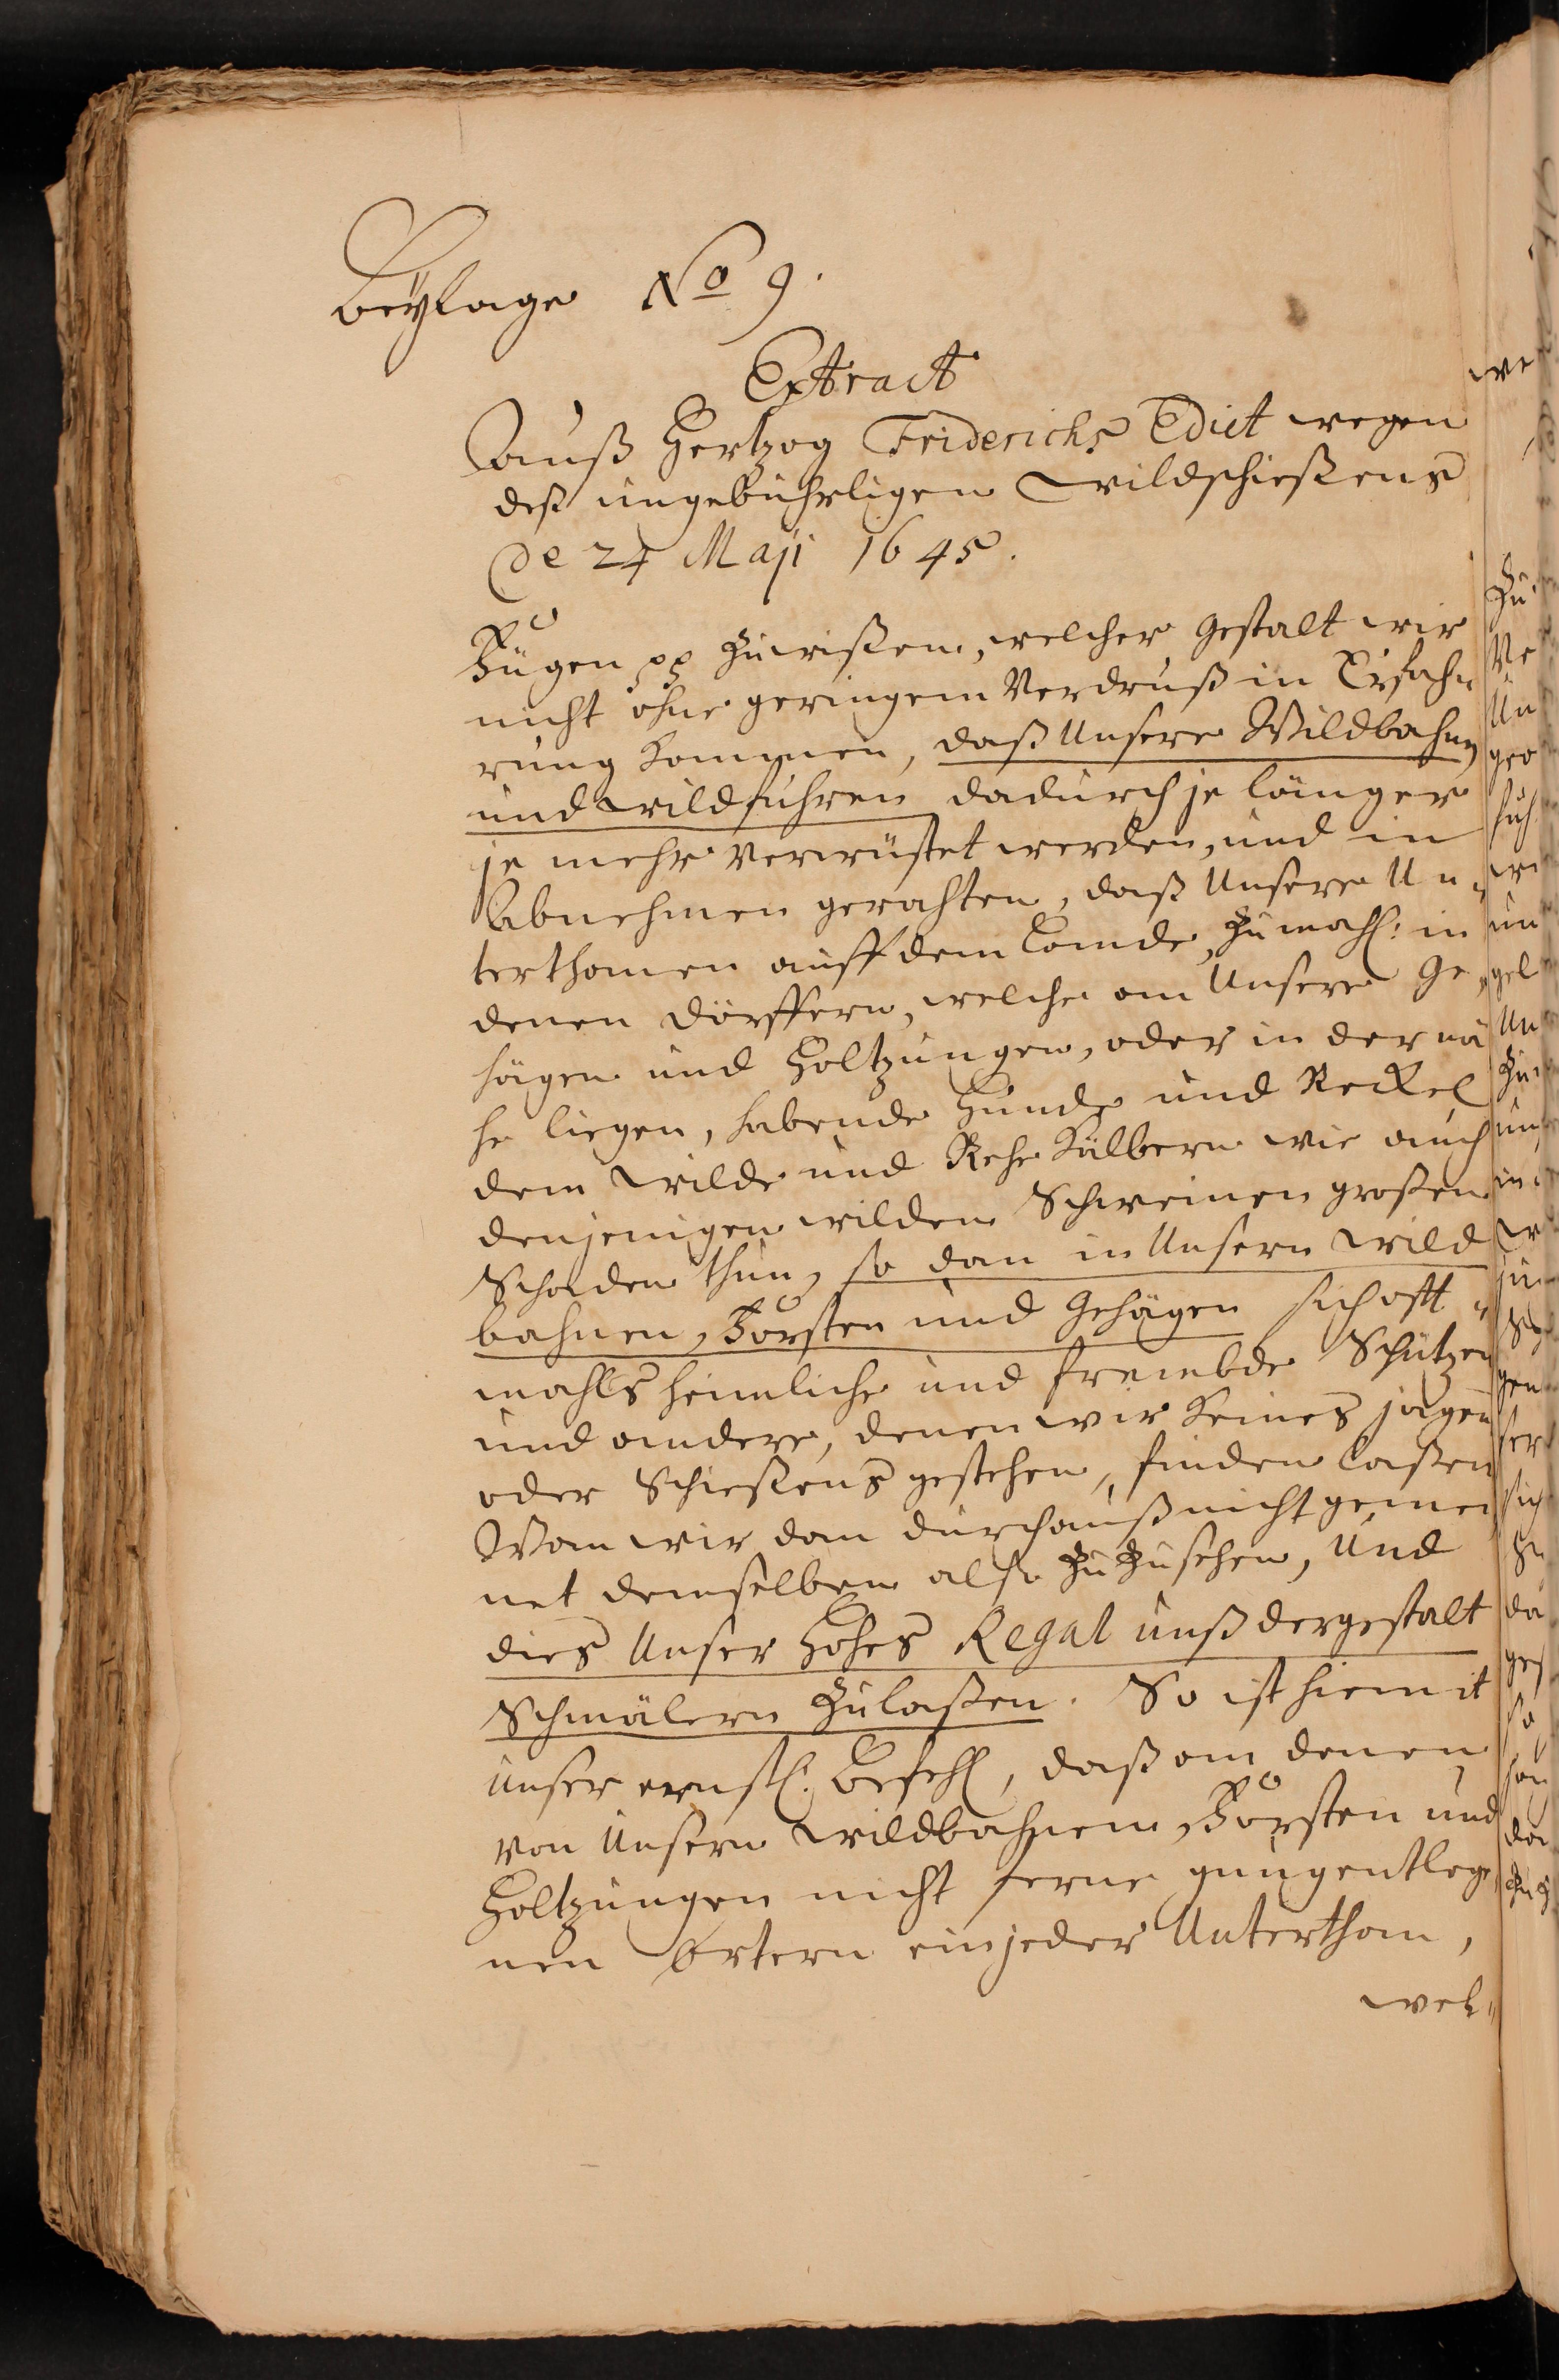 Beÿlage No 9.
Extract
Auß Hertzog Friderichs Edict wegen
deß ungebührligen Wildschießens
de 24 Maji 1645.
Fügen pp zuwißen, welcher gestalt wir
nicht ohne geringem Verdruß in Erfah-
rung kommen, daß Unsere Wildbahn,
und Wildfuhren dadurch je länger
je mehr verwüstet werden, und in
Abnehmen gerahten, daß Unsere Un-
terthanen auff dem Lande, zumahl: in
denen Dörffern, welche an Unsere Ge-
hägen und Holtzungen, oder in der nä
he liegen, habende Hunde und Reckel
dem Wilde und Rehe Kälbern wie auch
denjenigen wilden Schweinen großen
Schaden thun, so dan in Unsern Wild
bahnen, Forsten und Gehägen sich oft-
mahls heimliche und frembde Schützen
und andere, denen wir keines jagen
oder Schießens gestehen, finden laßen
Wan wir dan durchauß nicht gemei
net demselben also zuzusehen, Und
dies Unser Hohes Regal unß dergestalt
Schmälern zulaßen. So ist hiemit
unser ernstl: Befehl, daß an denen
von Unsern Wildbahnen, Forsten und
Holtzungen nicht ferne gnug entlege,
nen Örtern ein jeder Unterthan,
wel-